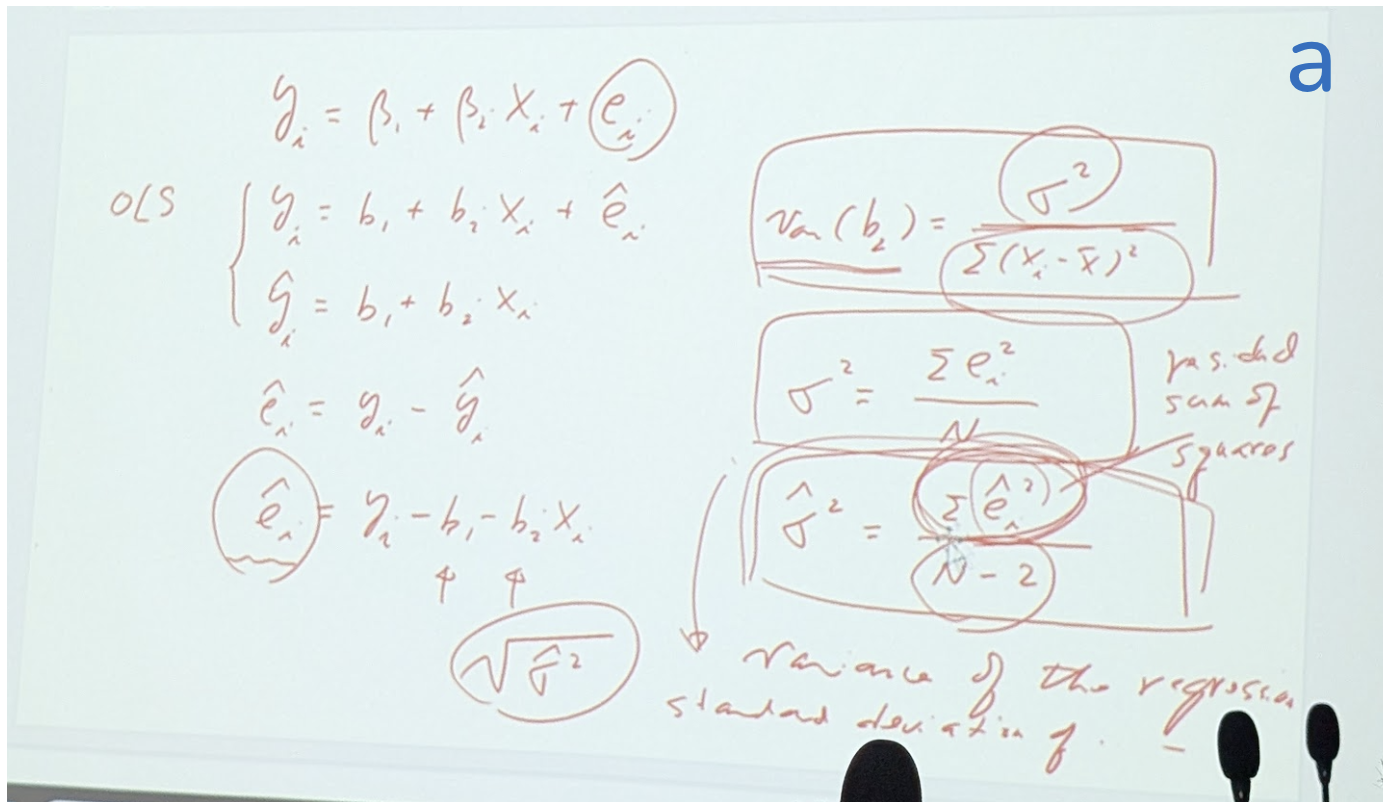 a
y_i = β_1 + β_2 x_i + e_i
OLS
y_i = b_1 + b_2 x_i + ê_i
ŷ_i = b_1 + b_2 x_i
ê_i = y_i - ŷ_i
ê_i = y_i - b_1 - b_2 x_i
√σ̂²
Var(b_2) = σ² / Σ(x_i - x̄)²
σ² = Σe_i² / N
residual
sum of
squares
σ̂² = Σê_i² / N - 2
variance of the regression
standard deviation of . -